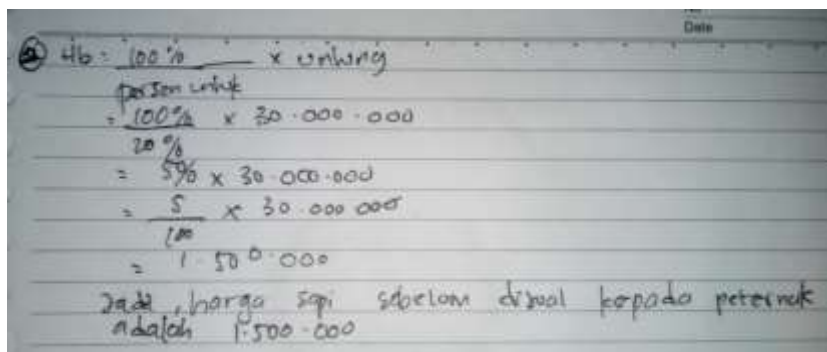 Date
Hb = 100% x untung
persen untuk
= 100% x 30.000.000
20%
= 5% x 30.000.000
= 5 x 30.000.000
100
= 1.500.000
Jadi, harga sapi sebelom dijual kepada peternak
adalah 1.500.000